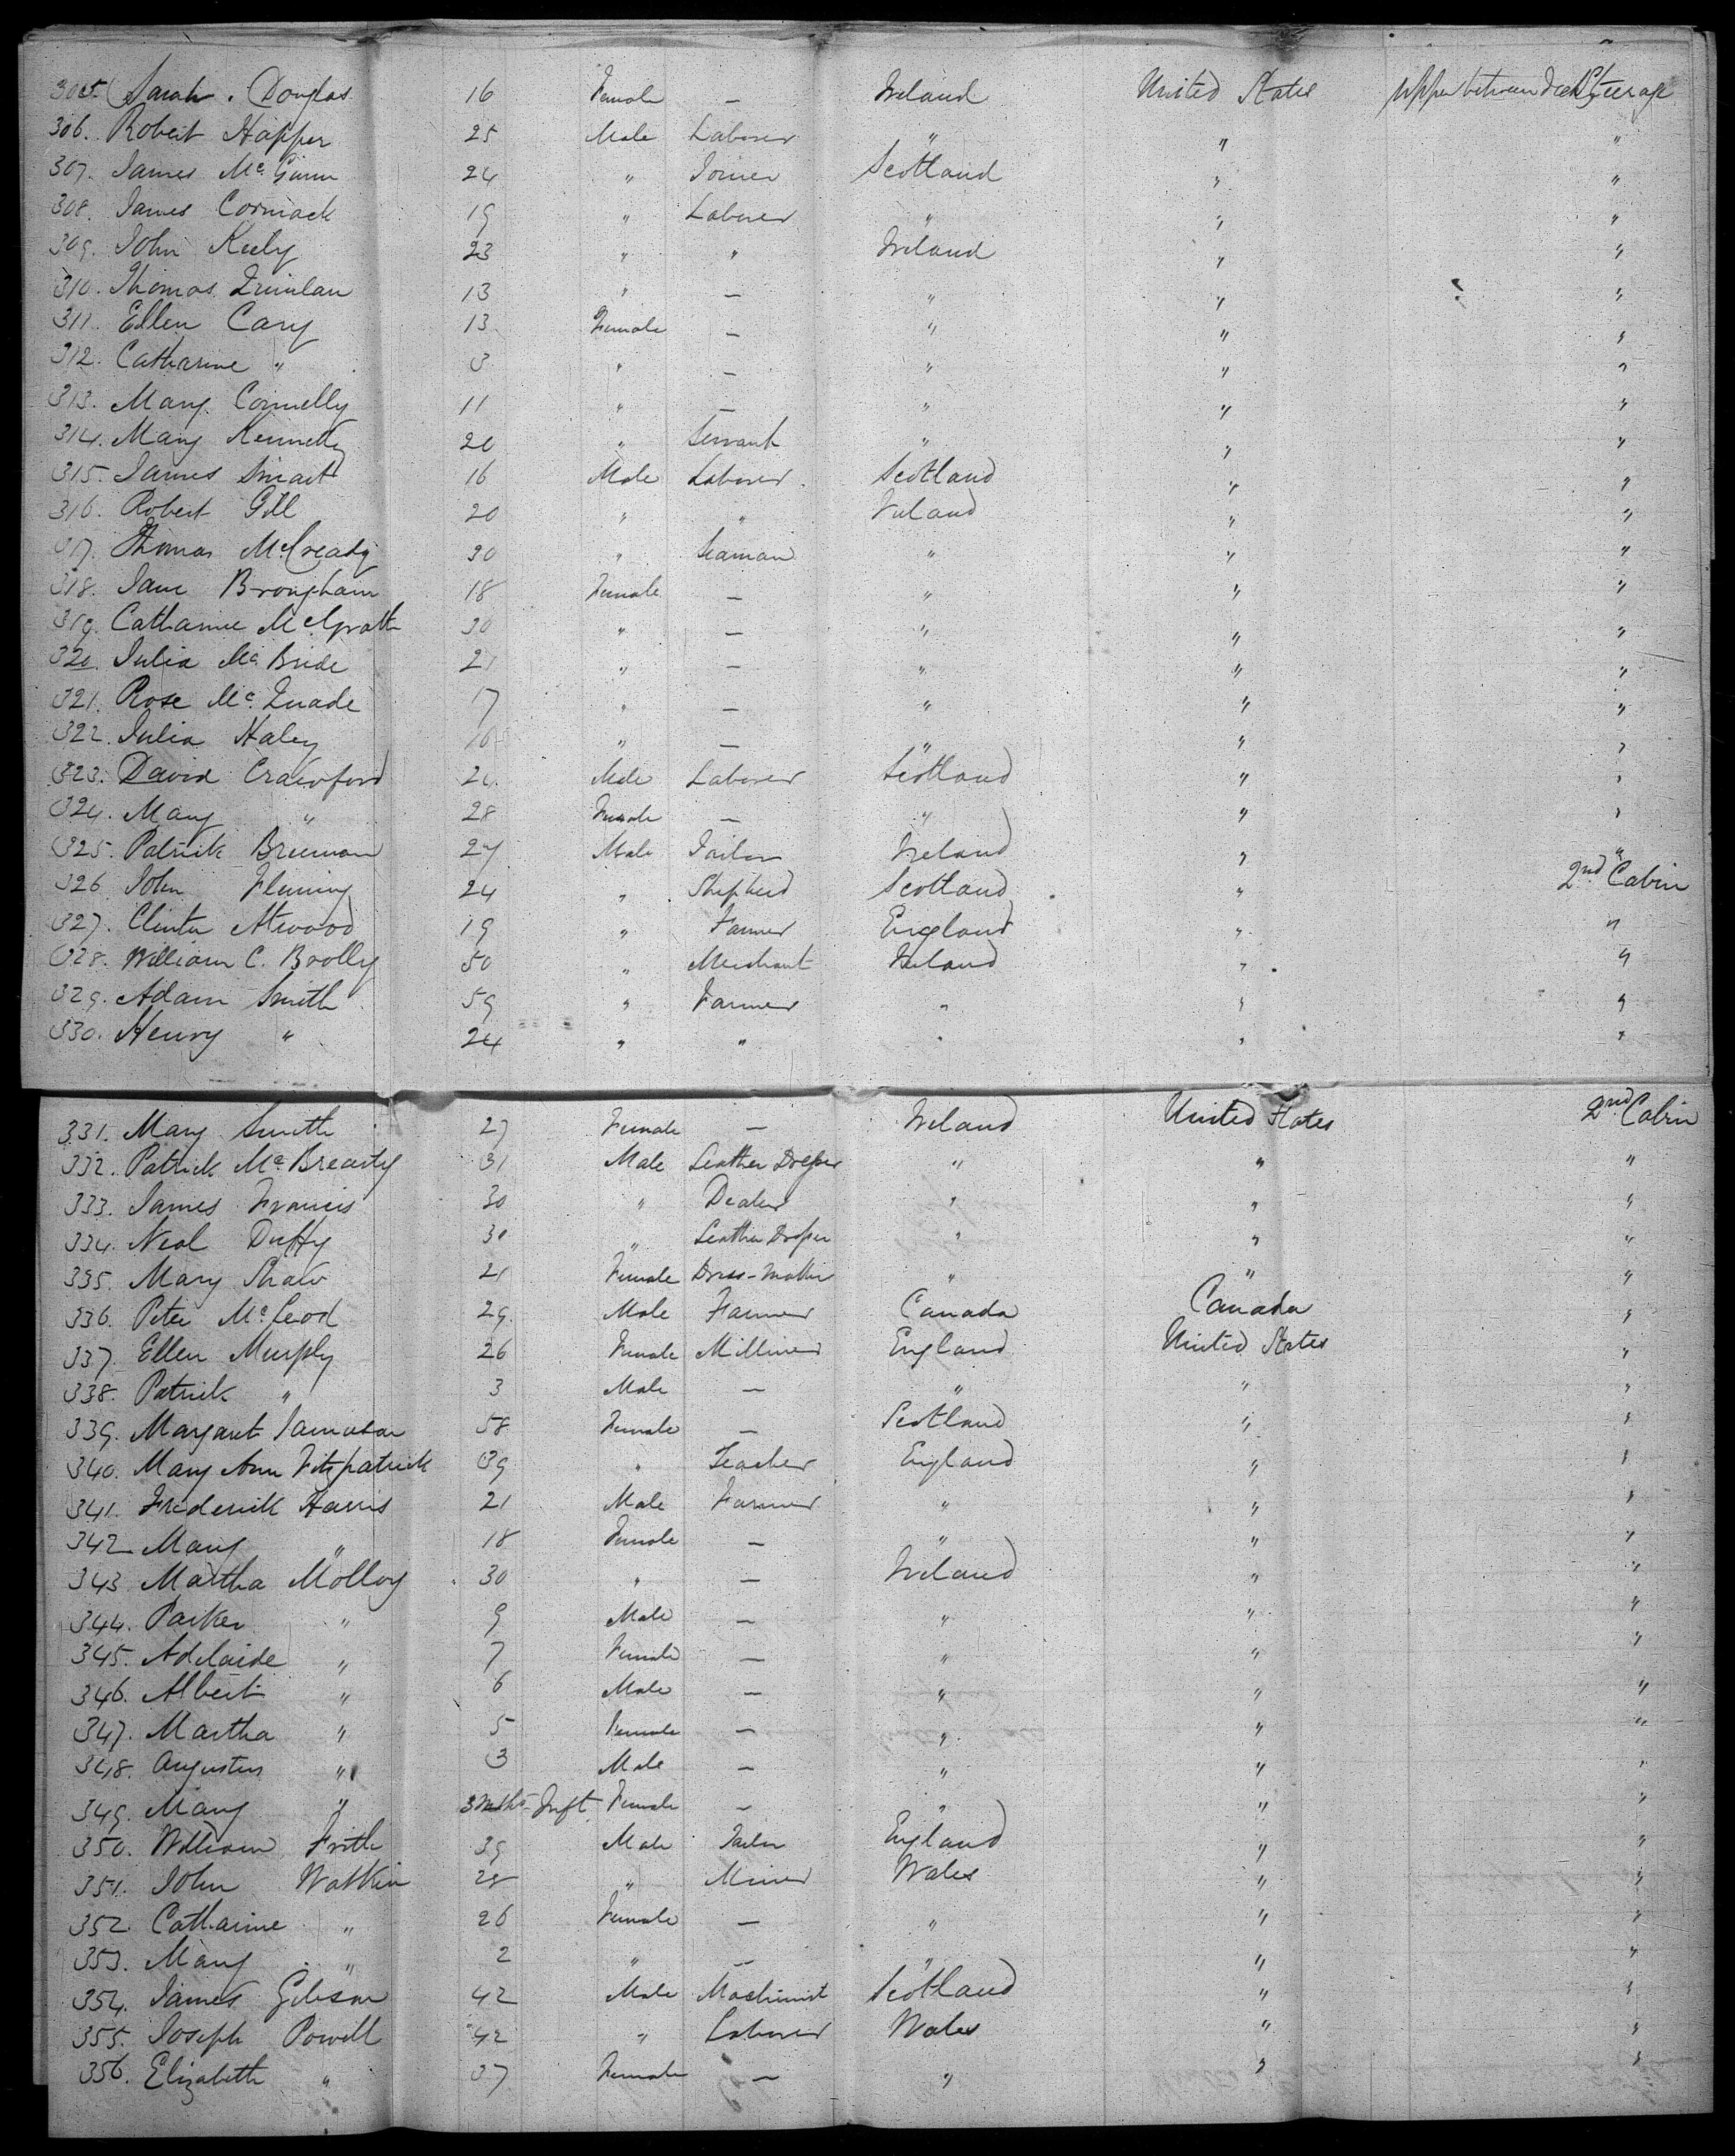 305. Sarah Douglas 16 Female — Ireland United States Upper between decks Steerage
306. Robert Hopper 25 Male Laborer " " "
307. James Mc Gunn 24 " Joiner Scotland " "
308. James Cormack 19 " Laborer " " "
309. John Keely 23 " " Ireland " "
310. Thomas Quinlan 13 " — " " "
311. Ellen Cary 13 Female — " " "
312. Catharine " 3 " — " " "
313. Mary Connelly 11 " — " " "
314. Mary Kennedy 20 " Servant " " "
315. James Smart 16 Male Laborer Scotland " "
316. Robert Gill 20 " " Ireland " "
317. Thomas McCready 30 " Seaman " " "
318. Jane Brougham 18 Female — " " "
319. Catharine McGrath 30 " — " " "
320. Julia Mc Bride 21 " — " " "
321. Rose Mc Quade 17 " — " " "
322. Julia Haley 16 " — " " "
323. David Crawford Male Laborer Scotland " "
324. Mary " 28 Female — " " "
325. Patrick Brennan 27 Male Tailor Ireland " "
326 John Fleming 24 " Shepherd Scotland " 2nd Cabin
327. Clinton Atwood 19 " Farmer England " "
328. William C. Boolly 50 " Merchant Ireland " "
329. Adam Smith 59 " Farmer " " "
330. Henry " 24 " " " " "
331. Mary Smith 27 Female — Ireland United States 2nd Cabin
332. Patrick Mc Brearty 31 Male Leather Draper " " "
333. James Francis 30 " Dealer " " "
334. Neal Duffy 30 " Leather Draper " " "
335. Mary Shaw 21 Female Dress-Maker " " "
336. Peter McLeod 29. Male Farmer Canada Canada "
337. Ellen Murphy 26 Female Milliner England United States "
338. Patrick " 3 Male — " " "
339. Margaret Jamieson 58 Female — Scotland " "
340. Mary Ann Fitzpatrick 39 " Teacher England " "
341. Frederick Harris 21 Male Farmer " " "
342. Mary " 18 Female — " " "
343 Martha Molloy 30 " — Ireland " "
344. Parker " 9 Male — " " "
345. Adelaide " 7 Female — " " "
346. Albert " 6 Male — " " "
347. Martha " 5 Female — " " "
348. Augustus " 3 Male — " " "
349. Mary " 3 Mths Inft Female — " " "
350. William Frith 39 Male Tailor England " "
351. John Watkin 28 " Miner Wales " "
352. Catharine " 26 Female — " " "
353. Mary " 2 " — " " "
354. James Gibson 42 Male Machinist Scotland " "
355. Joseph Powell 42 " Laborer Wales " "
356. Elizabeth " 37 Female — " " "